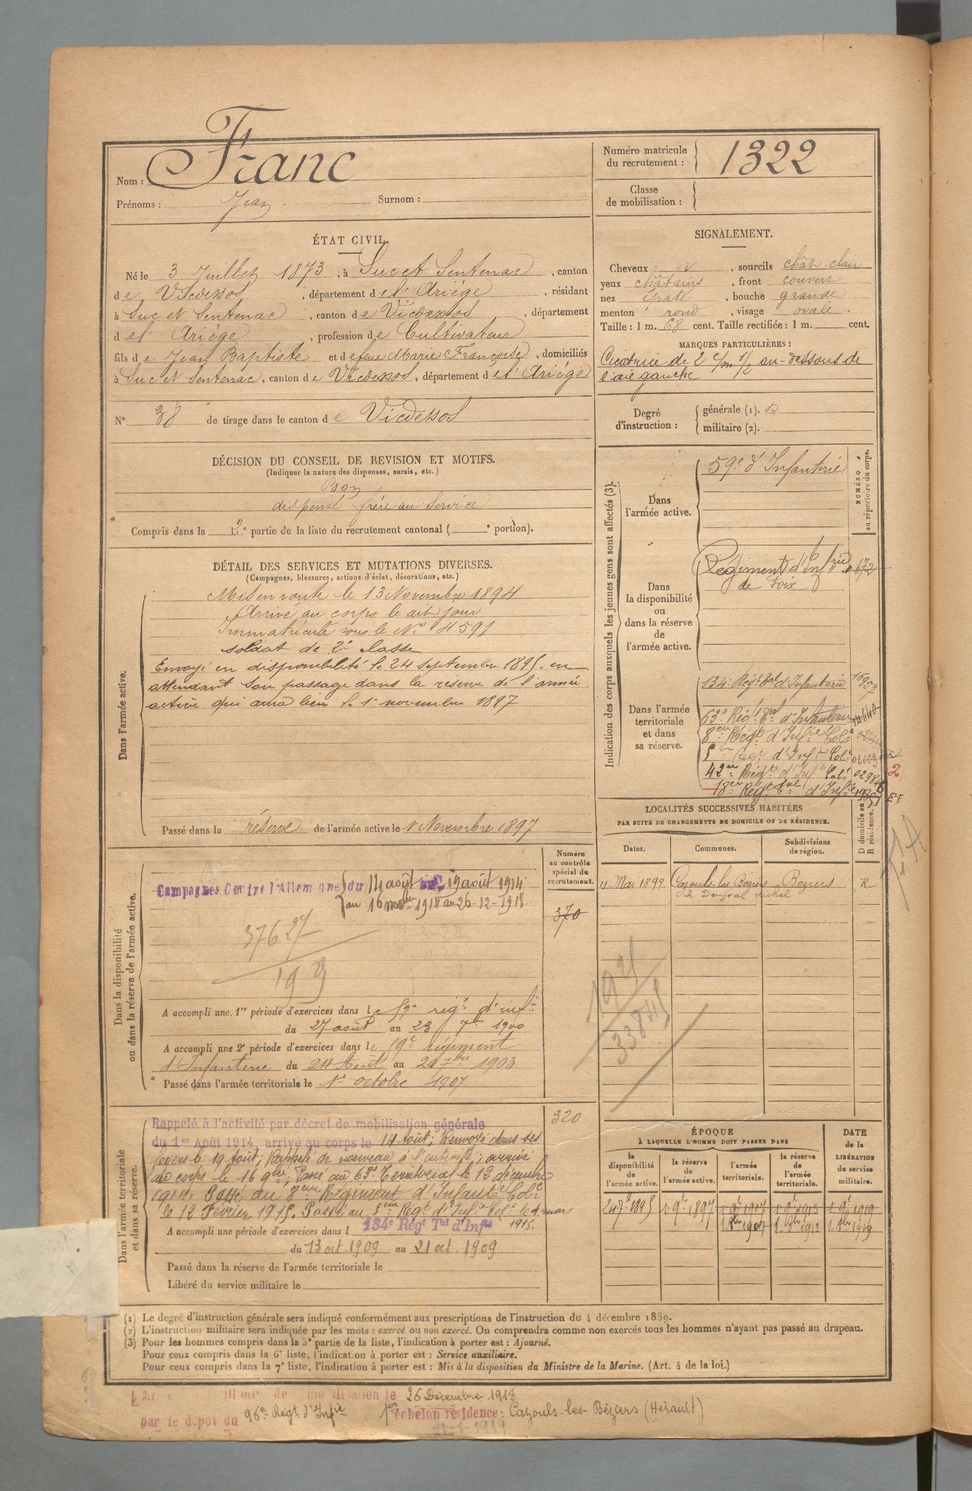 Nom : Franc
Prénoms : Jean Surnom :
Numéro matricule du recrutement : 1322
Classe de mobilisation :
ÉTAT CIVIL.
Né le 3 Juillet 1873, à Suc et Sentenac, canton
de Vicdessos, département de l'Ariège, résidant
à Suc et Sentenac, canton de Vicdessos, département
de l'Ariège, profession de Cultivateur
fils de Jean Baptiste et de Marie Françoise, domiciliés
à Suc et Sentenac, canton de Vicdessos, département de l'Ariège
N° 38 de tirage dans le canton de Vicdessos
SIGNALEMENT.
Cheveux et, sourcils chât clair
yeux châtains, front couvert
nez épaté, bouche grande
menton rond, visage ovale.
Taille : 1 m. 68 cent. Taille rectifiée : 1 m. cent.
MARQUES PARTICULIÈRES :
Cicatrice de 2 c/m 1/2 au-dessous de
l'axe gauche
Degré d'instruction : générale (1).
militaire (2).
DÉCISION DU CONSEIL DE REVISION ET MOTIFS.
(Indiquer la nature des dispenses, sursis, etc.)
Bon
dispensé frère au Service
Compris dans la 2e partie de la liste du recrutement cantonal ( e portion).
DÉTAIL DES SERVICES ET MUTATIONS DIVERSES.
(Campagnes, blessures, actions d'éclat, décorations, etc.)
Dans l'armée active.
Mis en route le 13 Novembre 1894
Arrivé au corps le dit jour
Immatriculé sous le N° 4591
soldat de 2e classe
Envoyé en disponibilité le 24 Septembre 1895, en
attendant son passage dans la réserve de l'armée
active qui aura lieu le 1er novembre 1897
Passé dans la réserve de l'armée active le 1 Novembre 1897
Indication des corps auxquels les jeunes gens sont affectés (3).
NUMÉRO au répertoire du corps.
Dans l'armée active.
59e d'Infanterie
Dans la disponibilité ou dans la réserve de l'armée active.
Régiment d'Infrie
de Foix
Dans l'armée territoriale et dans sa réserve.
134e Régt tal d'Infanterie
63e Régt tal d'Infanterie
8eme Régt d'Infie Cole
5eme Régt d'Infie Cole
42eme Régt d'Infie Cole
18e Régt tal d'Infie
2
LOCALITÉS SUCCESSIVES HABITÉES
PAR SUITE DE CHANGEMENTS DE DOMICILE OU DE RÉSIDENCE.
Dates. Communes. Subdivisions de région. D domicile ou R résidence.
11 Mai 1899 Cazouls les Beziers Beziers R
Dans la disponibilité ou dans la réserve de l'armée active.
Numéro au contrôle spécial du recrutement.
370
Campagnes Contre l'Allemagne du 14 août au 19 août 1914
au 26-12-1918
37627
193
A accompli une 1re période d'exercices dans le régt d'infie
du 27 août au 23 7bre 1900
A accompli une 2e période d'exercices dans le régiment
d'Infanterie du 24 Août au 20 7bre 1903
Passé dans l'armée territoriale le 1er octobre 1907
191
33845
Dans l'armée territoriale et dans sa réserve.
320
Rappelé à l'activité par décret de mobilisation générale
du 1er Août 1914, arrivé au corps le 14 Août; Renvoyé dans ses
foyers le 19 Août; Rappelé de nouveau à l'activité; arrivé
au corps le 16 9bre, Passé au 63e Territorial le 13 décembre
1914. Passé au 8eme Régiment d'Infantie Cole
le 12 Février 1915. Passé au 5eme Régt d'Infie Cole le 4 mars
1915.
A accompli une période d'exercices dans l 134e Régt Tal d'Infie
du 13 oct. 1909 au 21 oct. 1909
Passé dans la réserve de l'armée territoriale le
Libéré du service militaire le
ÉPOQUE
À LAQUELLE L'HOMME DOIT PASSER DANS
DATE de la LIBÉRATION du service militaire.
la disponibilité de l'armée active. la réserve de l'armée active. l'armée territoriale. la réserve de l'armée territoriale.
24 7bre 1895 1 9bre 1897
(1) Le degré d'instruction générale sera indiqué conformément aux prescriptions de l'instruction du 4 décembre 1889.
(2) L'instruction militaire sera indiquée par les mots : exercé ou non exercé. On comprendra comme non exercés tous les hommes n'ayant pas passé au drapeau.
(3) Pour les hommes compris dans la 5e partie de la liste, l'indication à porter est : Ajourné.
Pour ceux compris dans la 6e liste, l'indication à porter est : Service auxiliaire.
Pour ceux compris dans la 7e liste, l'indication à porter est : Mis à la disposition du Ministre de la Marine. (Art. 4 de la loi.)
le 26 Décembre 1918
par le dépot du 96e Régt d'Infie 1er échelon résidence : Cazouls-les-Béziers (Hérault)